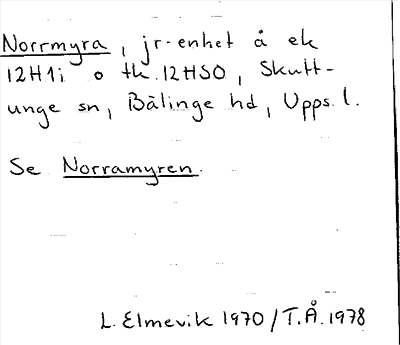 Norrmyra, jr-enhet å ek
12H1i o th. 12HSO, Skutt-
unge sn, Bälinge hd, Upps. l.
Se Norramyren.
L. Elmevik 1970 / T.Å. 1978